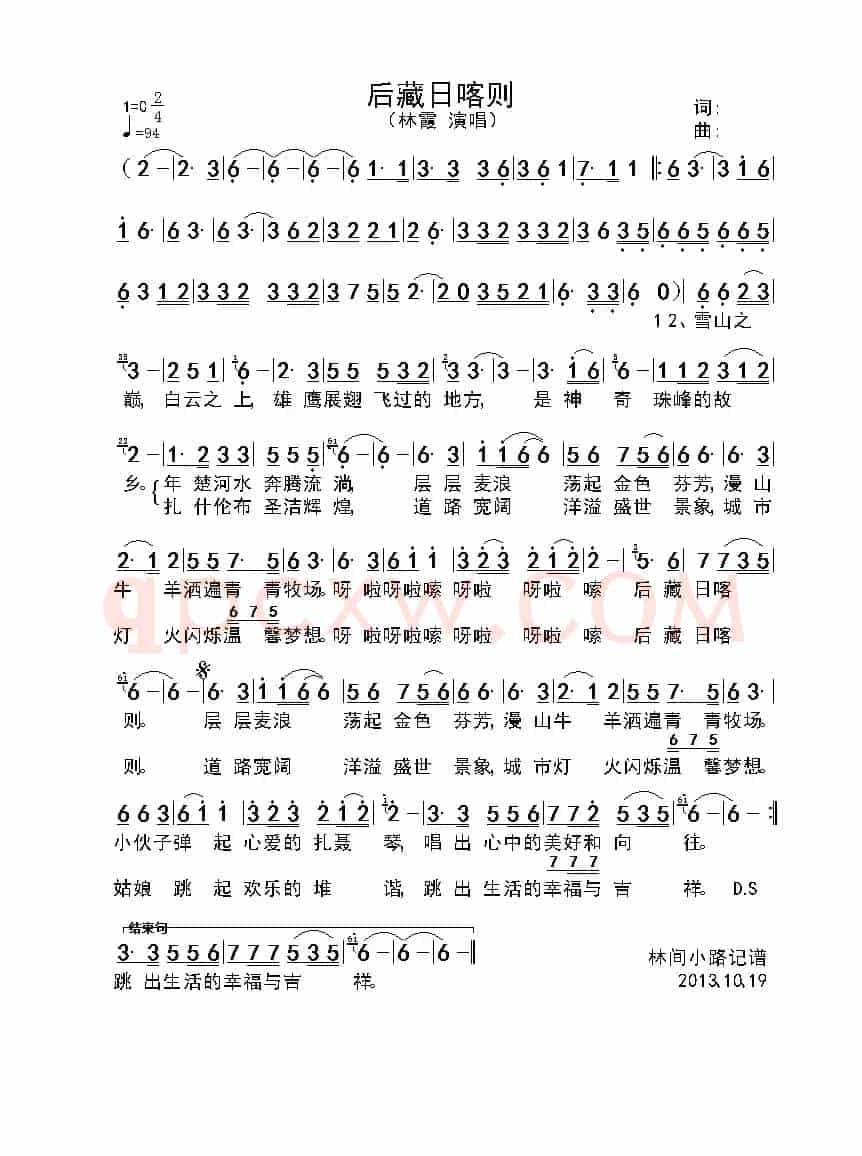 后藏日喀则
1=C 2/4
（林霞 演唱）
词:
♩=94
曲:
（2－|2· 3|6－|6－|6－|6 1· 1|3· 3 3 6|3 6 1|7· 1 1‖:6 3·|3 1 6|
1 6·|6 3·|6 3·|3 6 2|3 2 2 1|2 6·|3 3 2 3 3 2|3 6 3 5|6 6 5 6 6 5|
6 3 1 2|3 3 2 3 3 2|3 7 5 5|5 2·|2 0 3 5 2 1|6· 3 3|6 0）|6 6 2 3|
1 2、雪山之
3－|2 5 1|6－|2· 3|5 5 5 3 2|3 3·|3－|3· 1 6|6－|1 1 2 3 1 2|
巅, 白云之 上, 雄 鹰展翅 飞过的 地方, 是 神 奇 珠峰的故
2－|1· 2 3 3|5 5 5|6－|6－|6· 3|1 1 6 6|5 6 7 5 6|6 6·|6· 3|
乡。 年 楚河水 奔腾流 淌, 层 层 麦浪 荡起 金色 芬芳, 漫 山
扎 什伦布 圣洁辉 煌, 道 路 宽阔 洋溢 盛世 景象, 城 市
2· 1|2 5 5 7· 5|6 6 3·|3· 6|6 1 1|3 2 3 2 1 2|2－|5· 6|7 7 3 5|
牛 羊洒遍青 青牧场。呀 啦呀啦嗦 呀啦 呀啦 嗦 后 藏 日喀
6 7 5
灯 火闪烁温 馨梦想。呀 啦呀啦嗦 呀啦 呀啦 嗦 后 藏 日喀
6－|6－|6· 3|1 1 6 6|5 6 7 5 6|6 6·|6· 3|2· 1|2 5 5 7· 5|6 3·|
则。 层 层麦浪 荡起 金色 芬芳, 漫 山牛 羊洒遍青 青牧场。
6 7 5
则。 道 路宽阔 洋溢 盛世 景象, 城 市灯 火闪烁温 馨梦想。
6 6 3|6 1 1|3 2 3 2 1 2|2－|3· 3|5 5 6|7 7 2|5 3 5|6－|6－:‖
小伙子弹 起 心爱的 扎聂 琴, 唱 出 心中的美好和 向 往。
7 7 7
姑娘 跳 起 欢乐的 堆 谐, 跳 出 生活的幸福与 吉 祥。 D.S
结束句
3· 3|5 5 6|7 7 7|5 3 5|6－|6－|6－‖
林间小路记谱
跳 出生活的幸福与吉 祥。
2013.10.19
qpcxw.COM